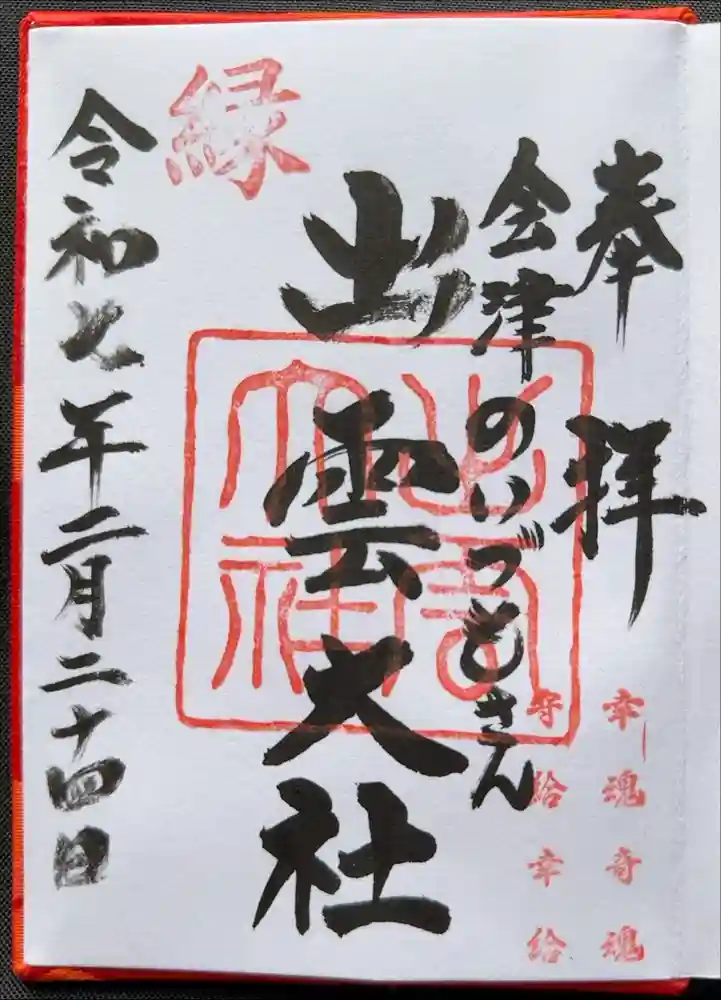 奉拝
会津のいづもさん
出雲大社
縁
令和七年二月二十四日
幸魂奇魂
守給幸給
出雲大社